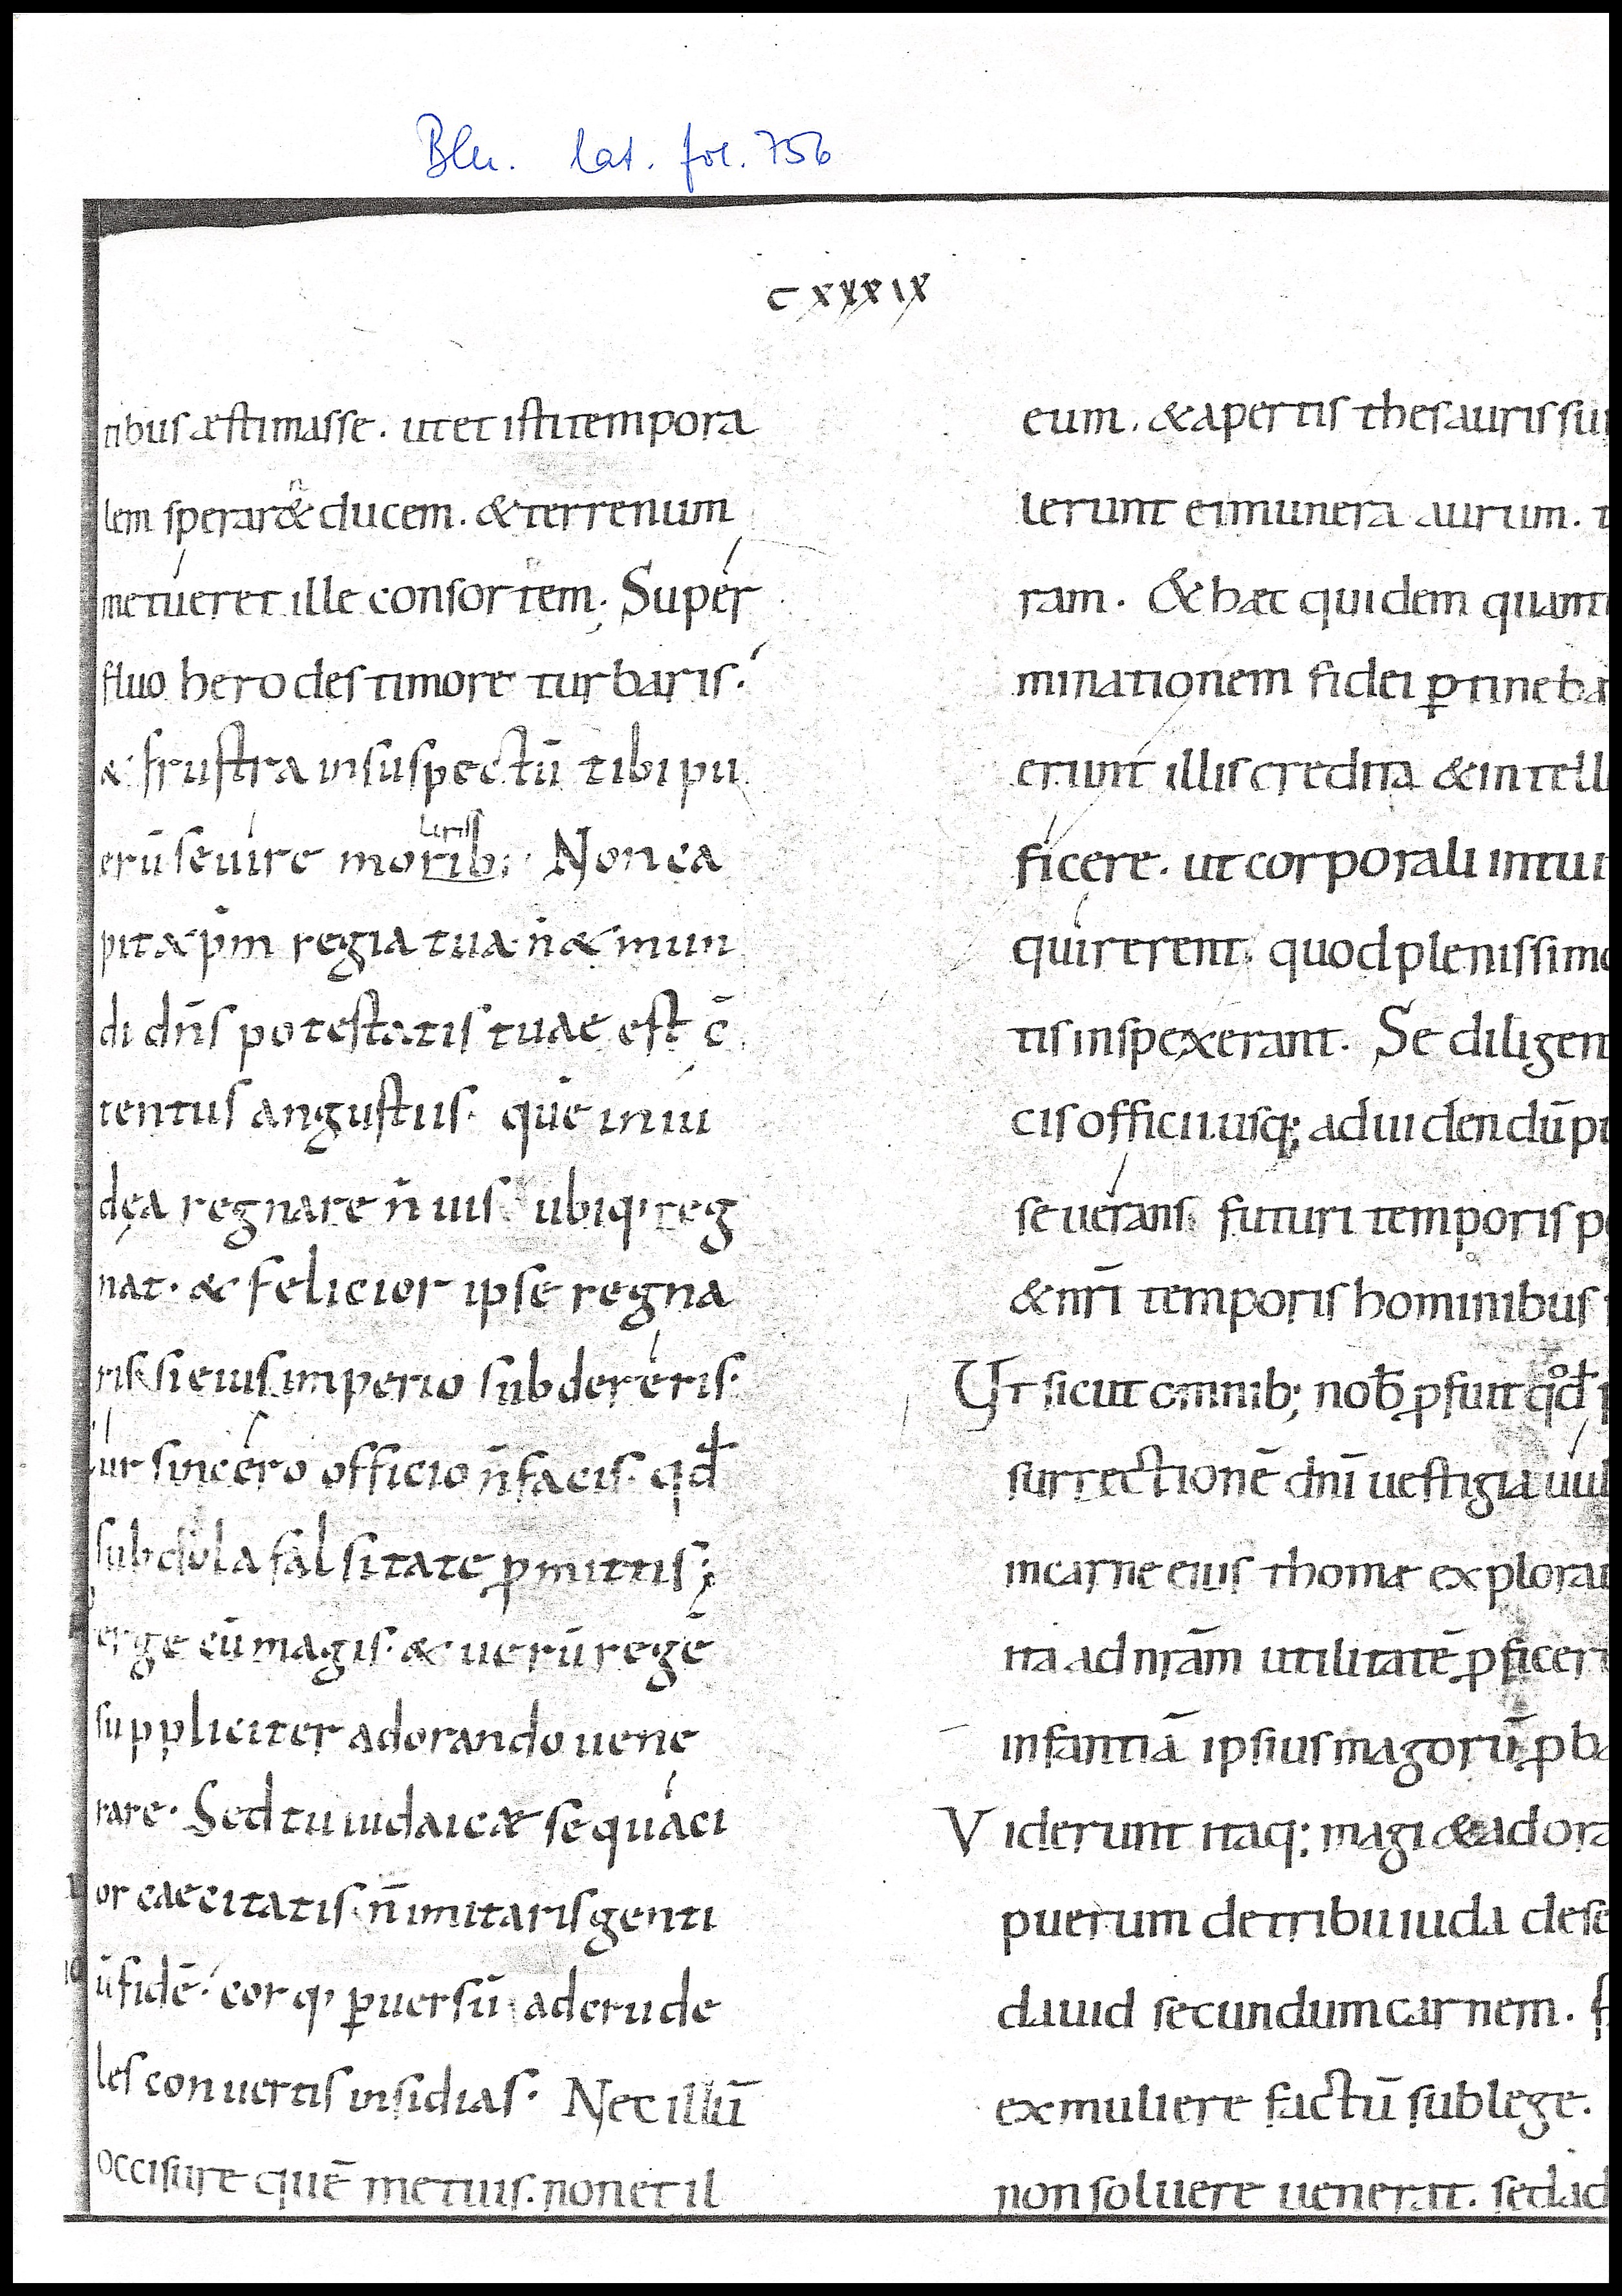 Bln. lat. fol. 756
CXXXIX
tibus æstimasse. ut et isti tempora
lem sperarent ducem. & terrenum
metueret ille consortem; Super
fluo herodes timore turbaris.
& frustra insuspectū tibi pu
erū seuire moliris. Non ca
pit xp̄m regia tua. n̄ & mun
di dn̄s potestatis tuae est c̄
tentus angustiis. quē in iu
dęa regnare n̄ uis ubiq; reg
nat. & felicior ipse regna
ris si eius imperio subdereris.
Cur sincero officio n̄ facis. qd̄
subdola falsitate ꝓmittis;
Perge cū magis. & uerū regē
suppliciter adorando uene
rare. Sed tu iudaicæ sequaci
or caecitatis. n̄ imitaris genti
ū fidē. cor q; ꝑuersū ad crude
les conuertis insidias. Nec illū
occisure quē metuis. non et il
eum. & apertis thesauris sui
lerunt ei munera aurum. t
ram. & hæc quidem quant
minationem fidei ꝑtineba
erunt illis credita & intell
ficere. ut corporali intui
quirerent. quod plenissimo
tis inspexerant. Se diligen
cis officii usq; ad uidendū pu
seuerans futuri temporis po
& nr̄i temporis hominibus
Ut sicut omnib; nob̄ ꝓfuit qd̄ p
surrectionē dn̄i uestigia uul
in carne eius thomæ explorau
ita ad nr̄am utilitatē ꝓficer
infantiā ipsius magorū ꝓba
Viderunt itaq; magi & adora
puerum de tribu iuda de se
dauid secundum carnem. f
ex muliere factū sub lege.
non soluere uenerat. sed ad